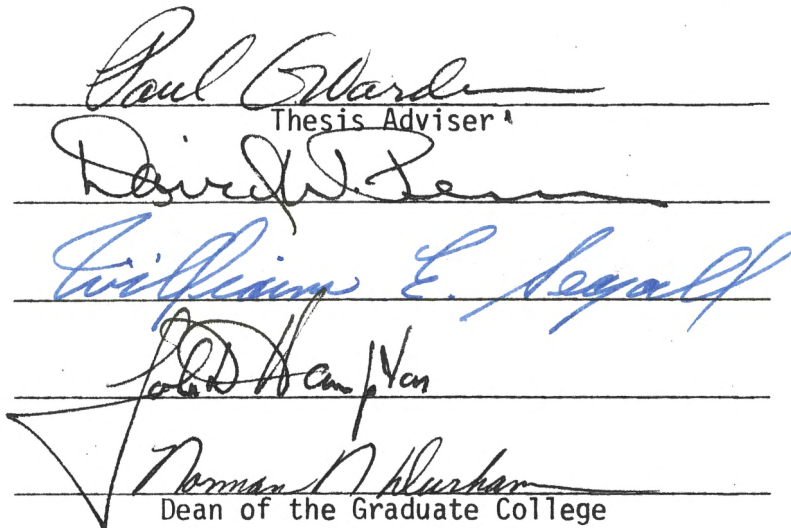 Paul G. Warden
Thesis Adviser
David W.
William E. Segall
John D Hampton
Norman N Durham
Dean of the Graduate College